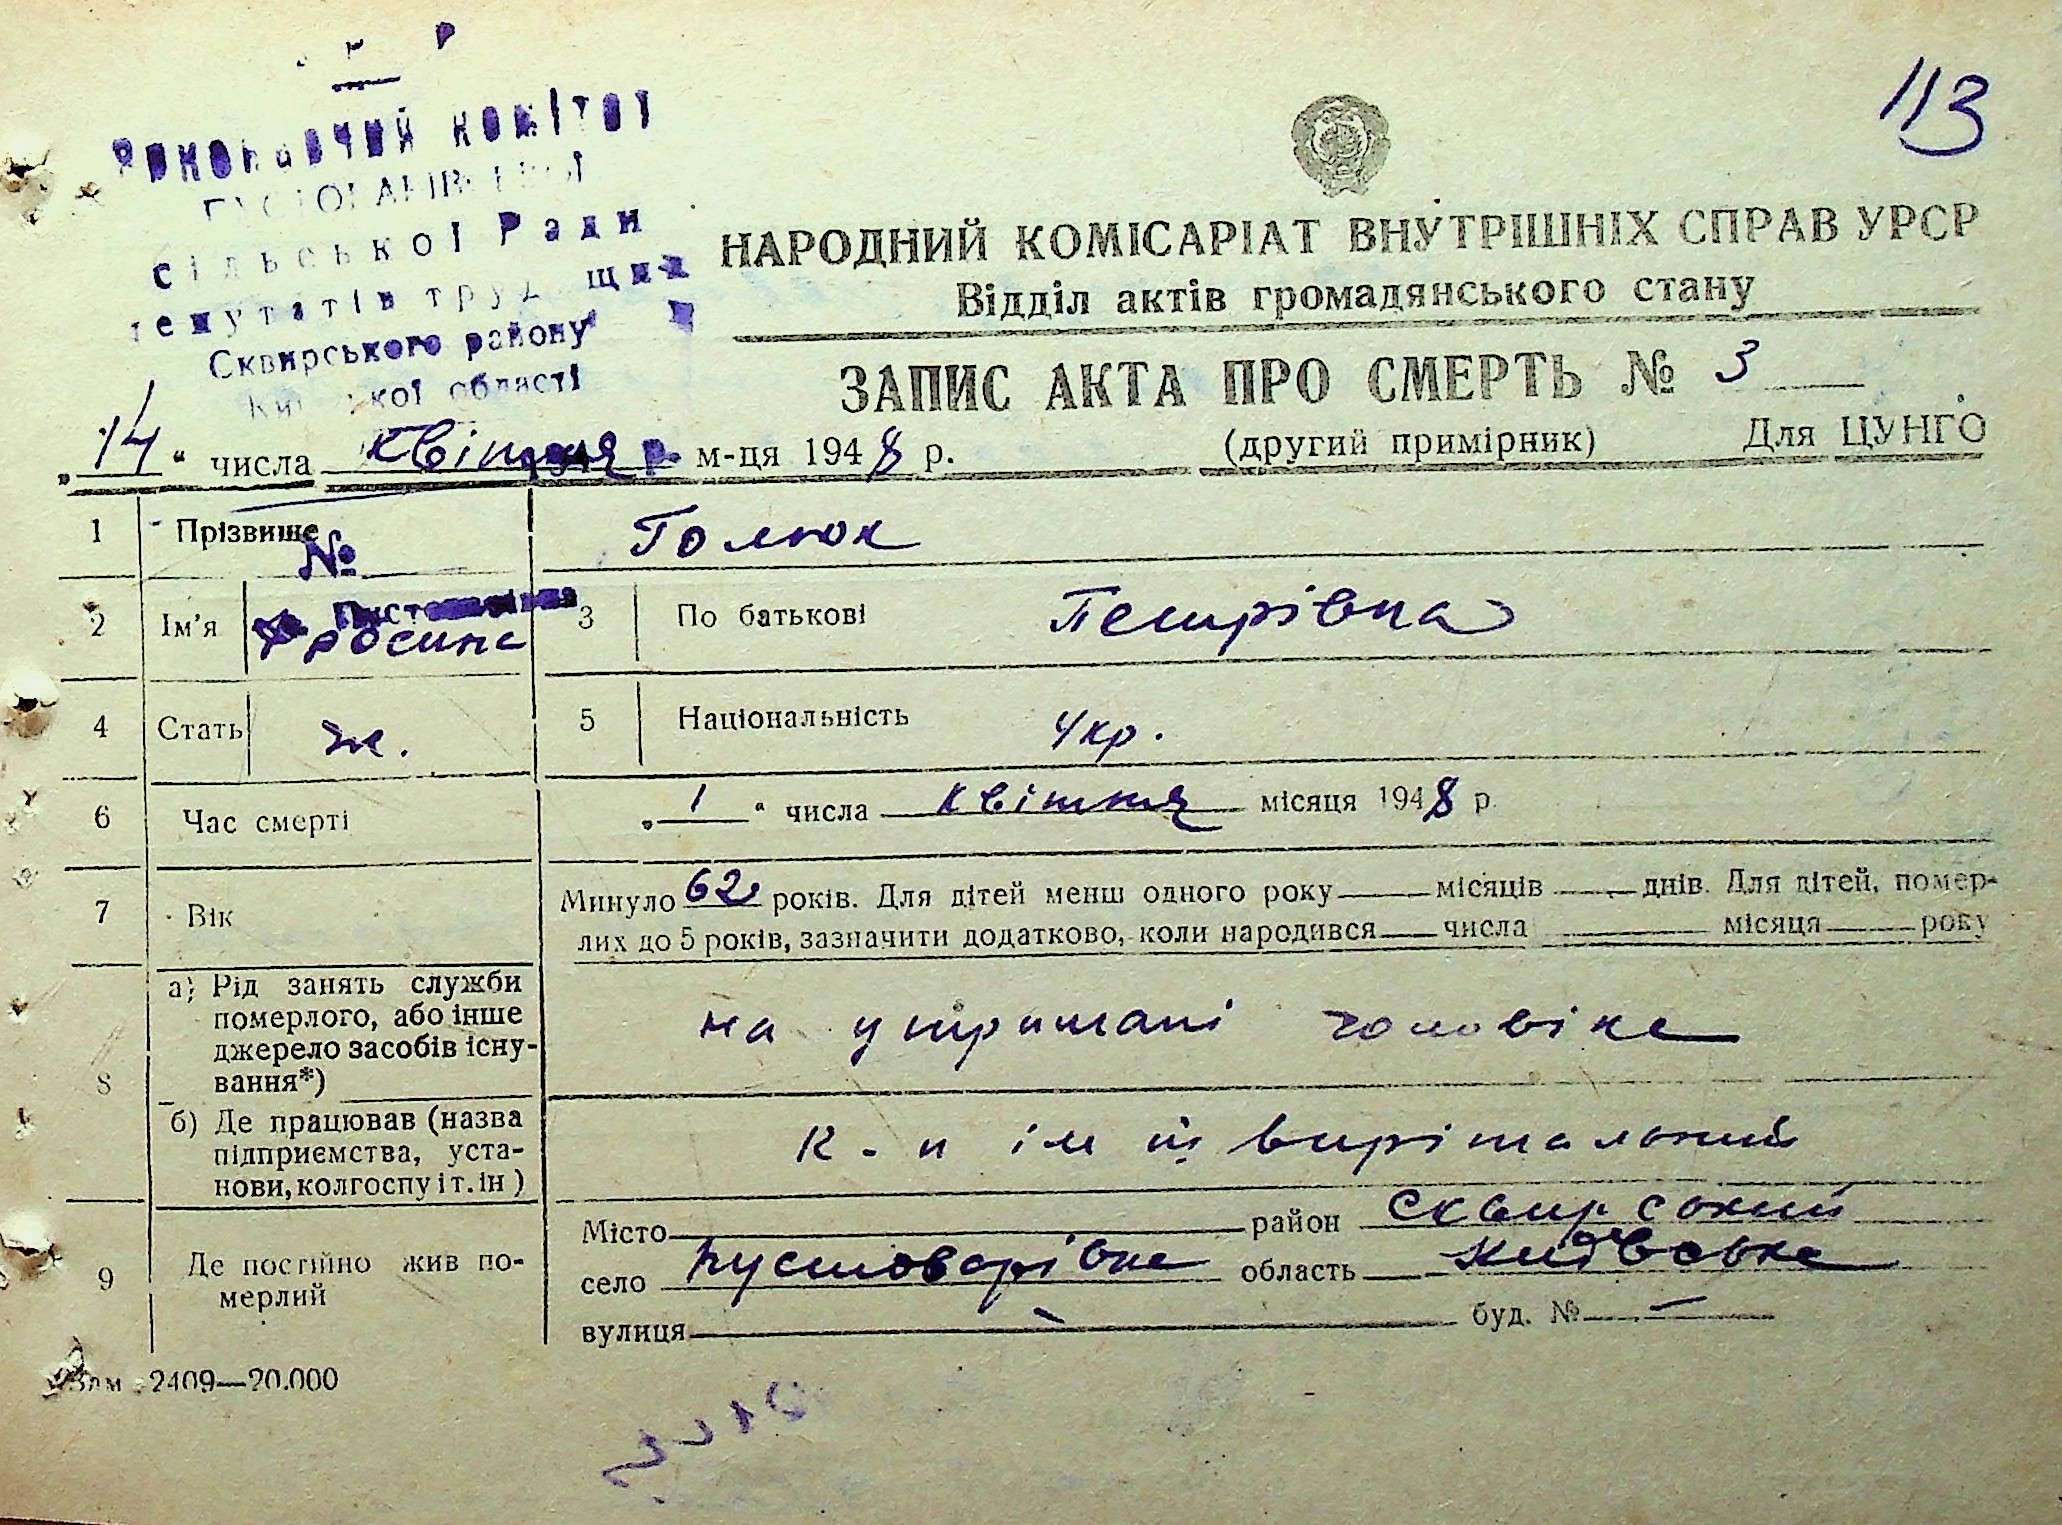 113
Виконавчий комітет
сільської Ради
депутатів трудящих
Сквирського району
Київської області
НАРОДНИЙ КОМІСАРІАТ ВНУТРІШНІХ СПРАВ УРСР
Відділ актів громадянського стану
ЗАПИС АКТА ПРО СМЕРТЬ № 3
„14“ числа квітня м-ця 1948 р. (другий примірник) Для ЦУНГО
1 Прізвище Голюк
№
2 Ім'я Фросина 3 По батькові Петрівна
4 Стать ж. 5 Національність Укр.
6 Час смерті „1“ числа квітня місяця 1948 р.
7 Вік Минуло 62 років. Для дітей менш одного року — місяців — днів. Для дітей, помер-
лих до 5 років, зазначити додатково, коли народився — числа — місяця — року
8 а) Рід занять служби
померлого, або інше
джерело засобів існу-
вання*)
на утримані чоловіка
б) Де працював (назва
підприємства, уста-
нови, колгоспу і т. ін)
к-п ім
9 Де постійно жив по-
мерлий
Місто — район Сквирський
село Пустоварівка область Київська
вулиця — буд. № —
Зам 2409—20.000